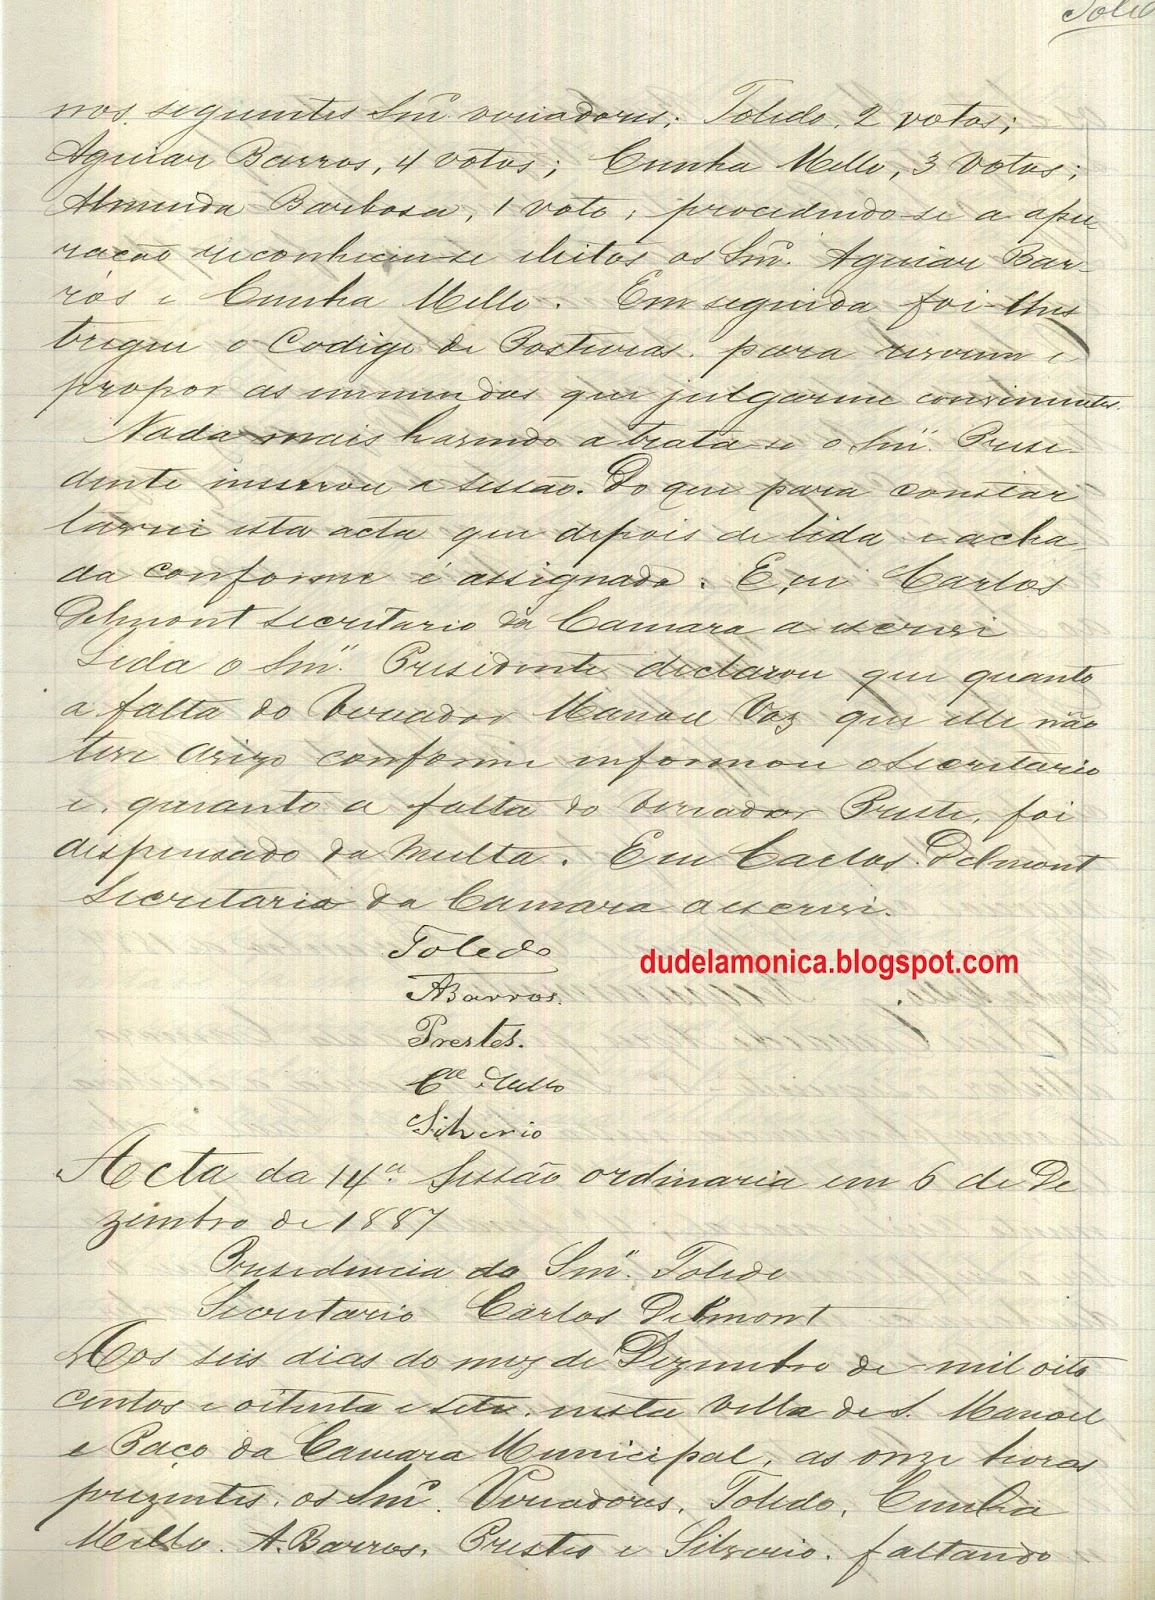 Tole
nos seguintes Snr.^s vereadores: Toledo, 2 votos;
Aguiar Barros, 4 votos; Cunha Mello, 3 votos;
Almeida Barbosa, 1 voto; procedendo-se a apu-
ração reconheceu-se eleitos os Snr.^s Aguiar Bar-
ros e Cunha Mello. Em seguida foi-lhes
tregue o Codigo de Posturas para reverem e
propor as emmendas que julgarem convenientes.
Nada mais havendo a tratar-se o Snr. Presi-
dente incerrou a sessão. Do que para constar
lavrei esta acta que depois de lida e acha-
da conforme é assignada. Eu Carlos
Delmont secretario da Camara a escrevi
Lida o Snr. Presidente declarou que quanto
a falta do Vereador Manoel Vaz que elle não
teve avizo conforme informou o Secretario
e quanto a falta do Vereador Prestes, foi
dispensado da multa. Eu Carlos Delmont
Secretario da Camara a escrevi.
Toledo
dudelamonica.blogspot.com
ABarros.
Prestes.
C.^a Mello
Silverio
Acta da 14ª Sessão ordinaria em 6 de De
zembro de 1887
Presidencia do Snr. Toledo
Secretario Carlos Delmont
Aos seis dias do mez de Dezembro de mil oito
centos e oitenta e sete, nesta Villa de S. Manoel
e Paço da Camara Municipal, as onze horas
prezentes, os Snr.^s Vereadores, Toledo, Cunha
Mello, A. Barros, Prestes e Silverio, faltando